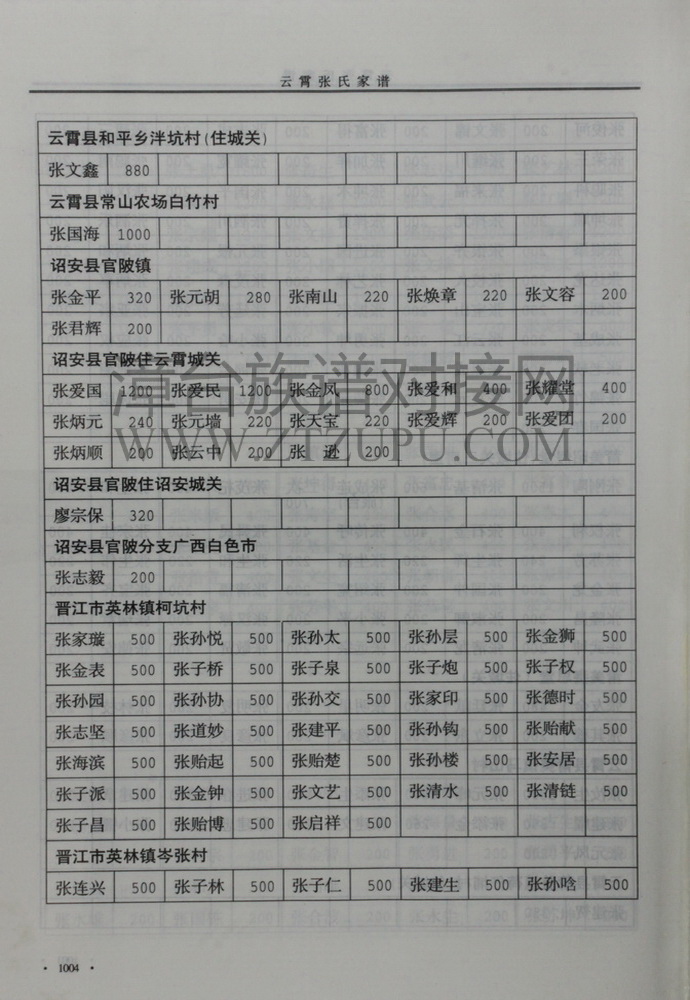 云霄张氏家谱
云霄县和平乡泮坑村(住城关)
张文鑫 880
云霄县常山农场白竹村
张国海 1000
诏安县官陂镇
张金平 320 张元胡 280 张南山 220 张焕章 220 张文容 200
张君辉 200
诏安县官陂住云霄城关
张爱国 1200 张爱民 1200 张金凤 800 张爱和 400 张耀堂 400
张炳元 240 张元墙 220 张天宝 220 张爱辉 200 张爱团 200
张炳顺 200 张云中 200 张 逊 200
诏安县官陂住诏安城关
廖宗保 320
诏安县官陂分支广西白色市
张志毅 200
晋江市英林镇柯坑村
张家璇 500 张孙悦 500 张孙太 500 张孙层 500 张金狮 500
张金表 500 张子桥 500 张子泉 500 张子炮 500 张子权 500
张孙园 500 张孙协 500 张孙交 500 张家印 500 张德时 500
张志坚 500 张道妙 500 张建平 500 张孙钩 500 张贻献 500
张海滨 500 张贻起 500 张贻楚 500 张孙楼 500 张安居 500
张子派 500 张金钟 500 张文艺 500 张清水 500 张清链 500
张子昌 500 张贻博 500 张启祥 500
晋江市英林镇岑张村
张连兴 500 张子林 500 张子仁 500 张建生 500 张孙啥 500
漳台族谱对接网
WWW.ZTZUPU.COM
· 1004 ·